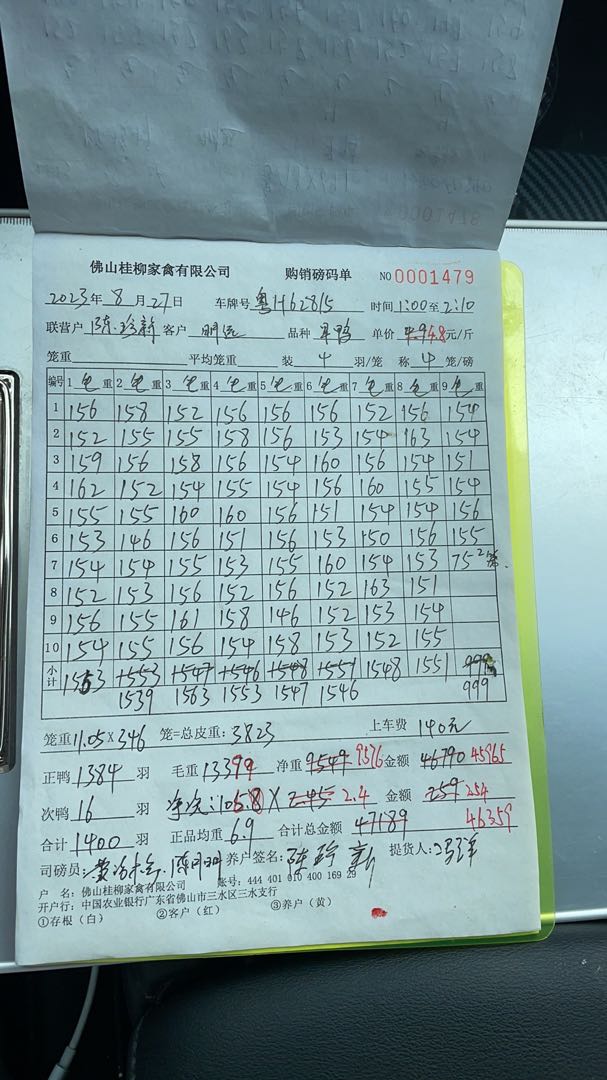 佛山桂柳家禽有限公司 购销磅码单 NO 0001479
2023年 8 月 27 日 车牌号 粤H62815 时间 1:00 至 2:10
联营户 陈珍新 客户 明远 品种 单价 4.9 4.8 元/斤
笼重 平均笼重 装 4 羽/笼 称 4 笼/磅
编号 1 毛重 2 毛重 3 毛重 4 毛重 5 毛重 6 毛重 7 毛重 8 毛重 9 毛重
1 156 158 152 156 156 156 152 156 154
2 152 155 155 158 156 153 154 163 154
3 159 156 158 156 154 160 156 154 151
4 162 152 154 155 154 156 160 155 154
5 155 155 160 160 156 151 154 154 156
6 153 146 156 151 156 153 150 156 155
7 154 154 155 153 155 160 154 153 75 2笼
8 152 153 156 152 156 152 163 151
9 156 155 161 158 146 152 153 154
10 154 155 156 154 158 153 152 155
小计 1553 1553 1547 1546 1548 1551 1548 1551 999
1539 1563 1553 1547 1546 999
笼重 11.05 × 346 笼=总皮重: 3823 上车费 140元
正鸭 1384 羽 毛重 13399 净重 9549 9576 金额 46790 45965
次鸭 16 羽 105.8 × 2.45 2.4 金额 259 254
合计 1400 羽 正品均重 6.9 合计总金额 47189 46359
司磅员: 养户签名: 陈珍新 提货人:
户 名: 佛山桂柳家禽有限公司 账号: 444 401 010 400 169 29
开户行: 中国农业银行广东省佛山市三水区三水支行
①存根（白） ②客户（红） ③养户（黄）